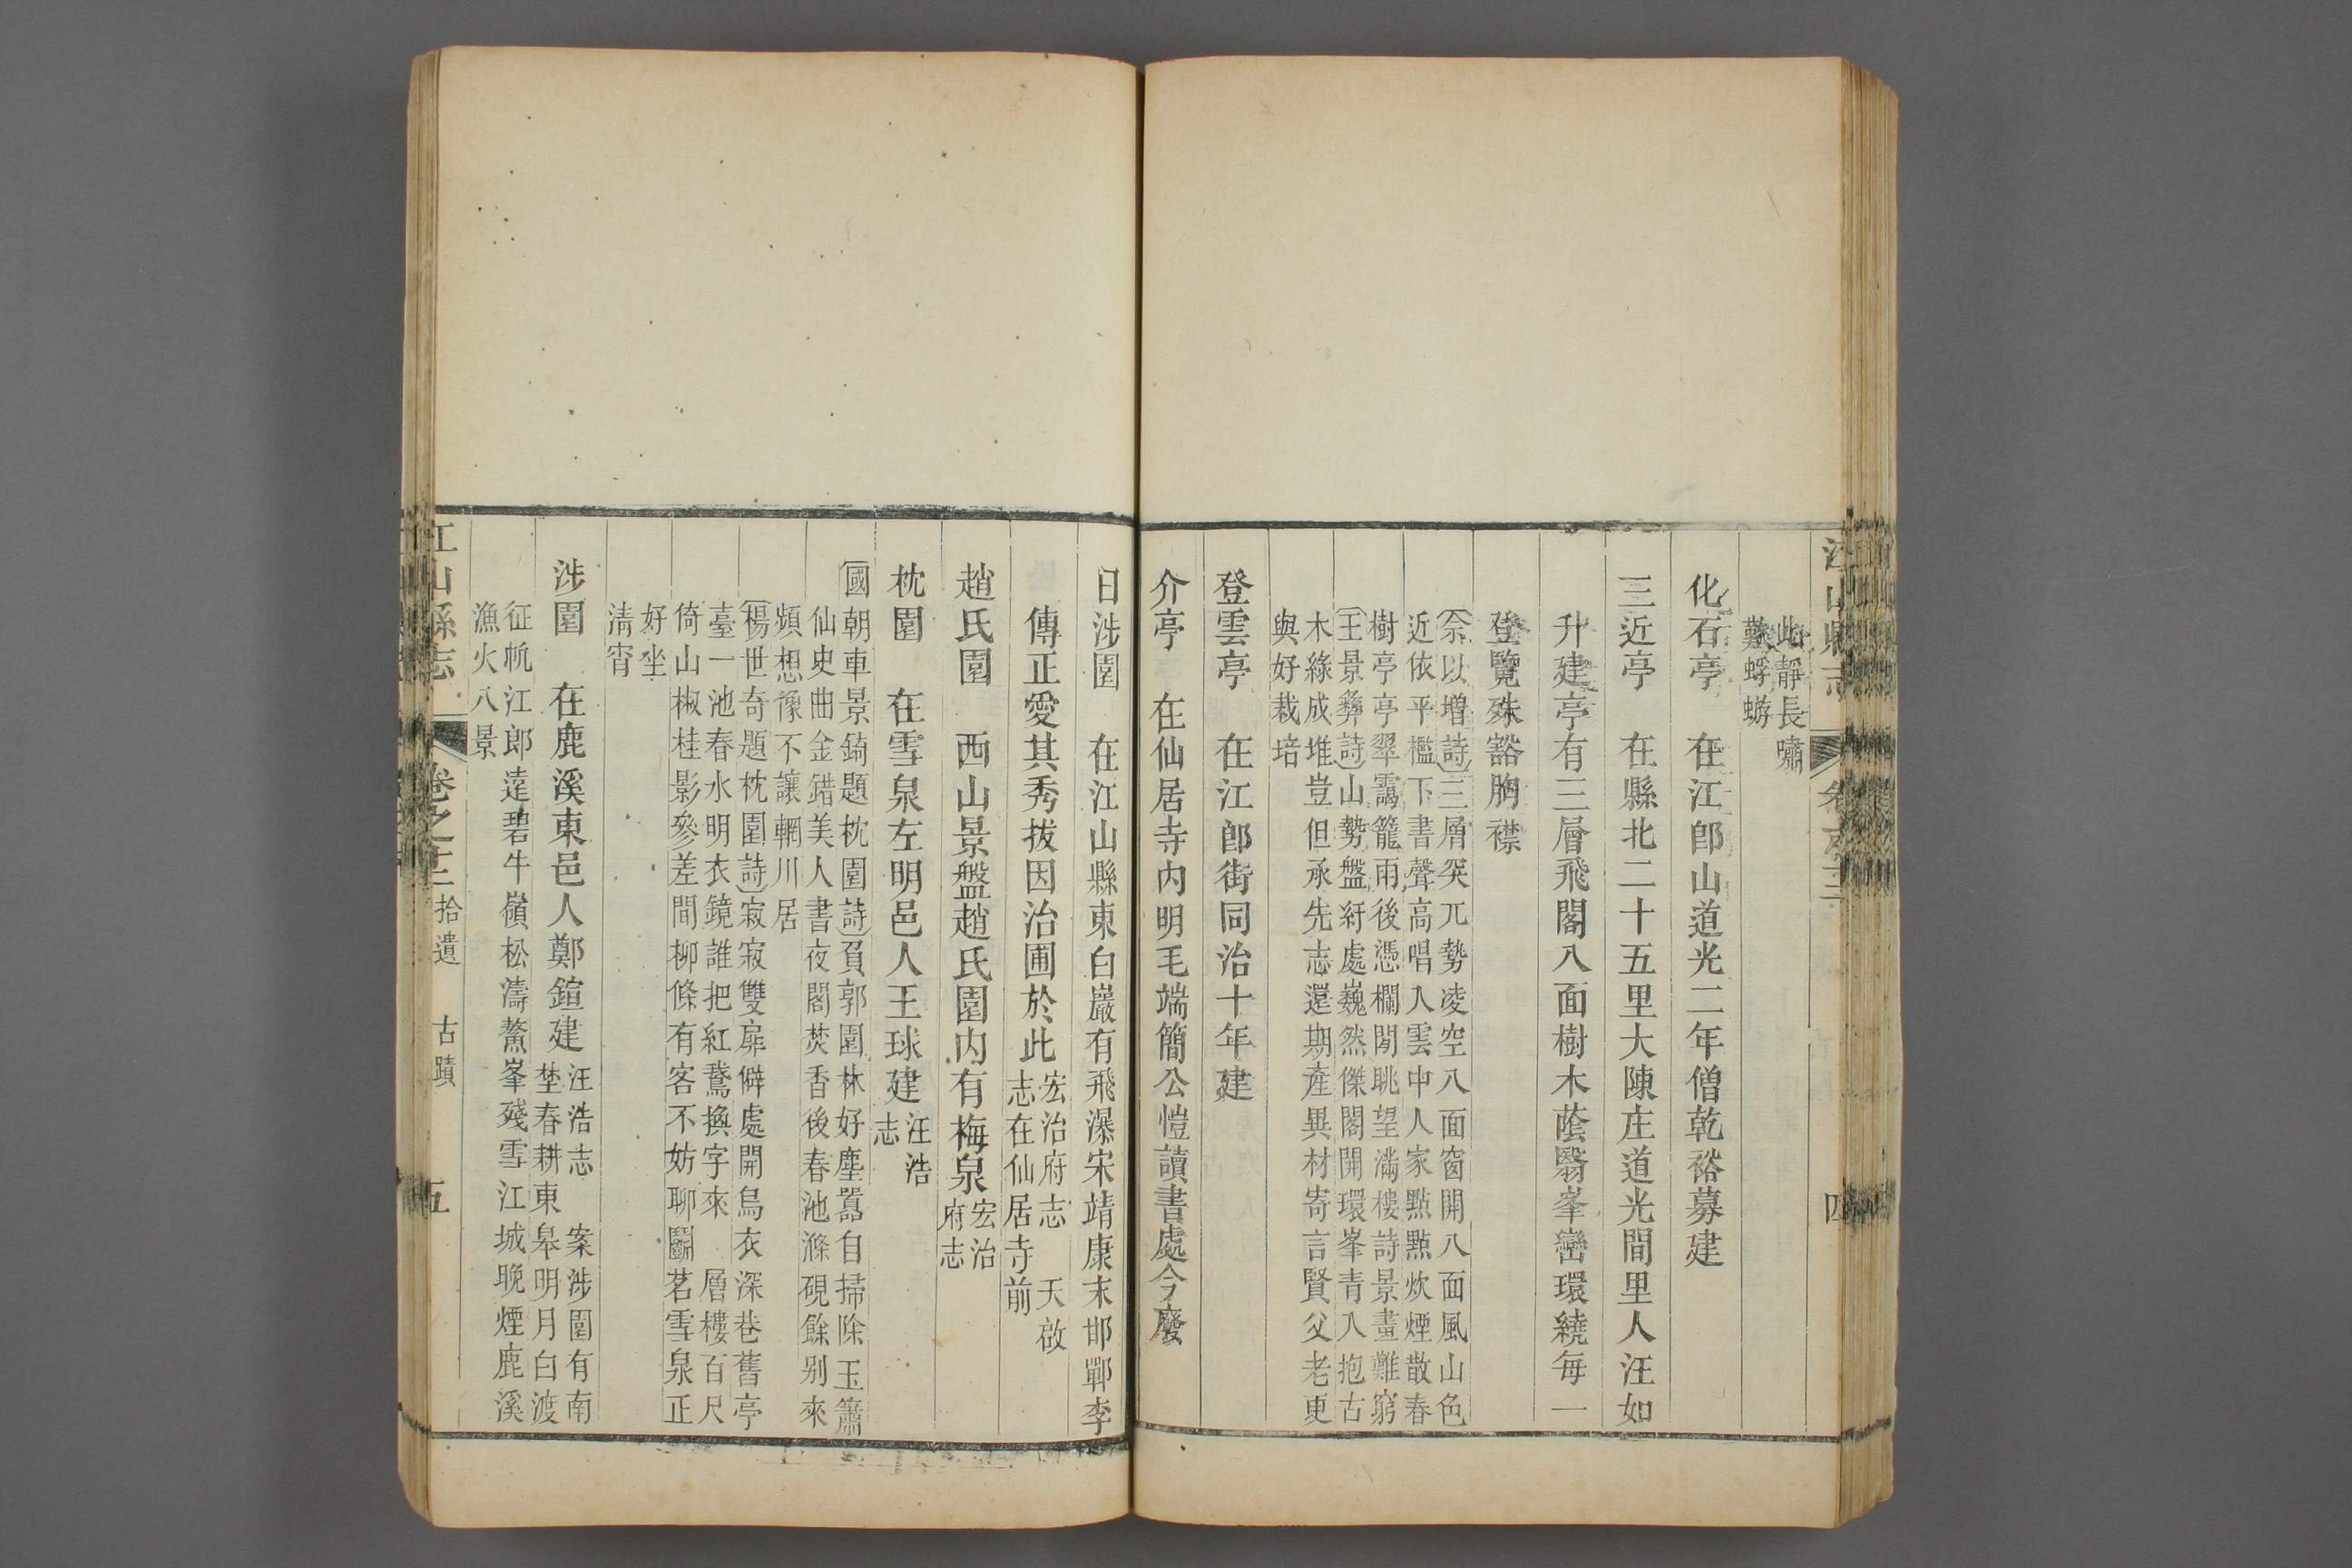 江山縣志
四
此靜長嘯
難蜉蝣
化石亭　在江郎山道光二年僧乾裕募建
三近亭　在縣北二十五里大陳庄道光間里人汪如
升建亭有三層飛閣八面樹木蔭翳峯巒環繞每一
登覽殊豁胸襟
余以增詩三層突兀勢凌空八面窗開八面風山色
近依平檻下書聲高唱入雲中人家點點炊煙散春
樹亭亭翠靄籠雨後憑欄閒眺望滿樓詩景畫難窮
王景彝詩山勢盤紆處巍然傑閣開環峯青入抱古
木綠成堆豈但承先志還期產異材寄言賢父老更
與好栽培
登雲亭　在江郎街同治十年建
介亭　在仙居寺內明毛端簡公愷讀書處今廢
日涉園　在江山縣東白巖有飛瀑宋靖康末邯鄲李
傳正愛其秀拔因治圃於此宏治府志　天啟
志在仙居寺前
趙氏園　西山景盤趙氏園内有梅泉宏治
府志
枕園　在雪泉左明邑人王球建汪浩
志
國朝車景錡題枕園詩負郭園林好塵囂自掃除玉簫
仙史曲金錯美人書夜閣焚香後春池滌硯餘别來
頻想像不讓輞川居
楊世奇題枕園詩寂寂雙扉僻處開烏衣深巷舊亭
臺一池春水明衣鏡誰把紅鵞換字來　層樓百尺
倚山椒桂影參差間柳條有客不妨聊鬬茗雪泉正
好坐
清宵
涉園　在鹿溪東邑人鄭鍹建汪浩志　案涉園有南
埜春耕東皋明月白渡
征帆江郎遠碧牛嶺松濤鰲峯殘雪江城晚煙鹿溪
漁火八景
江山縣志
卷之十二拾遺　古蹟
五